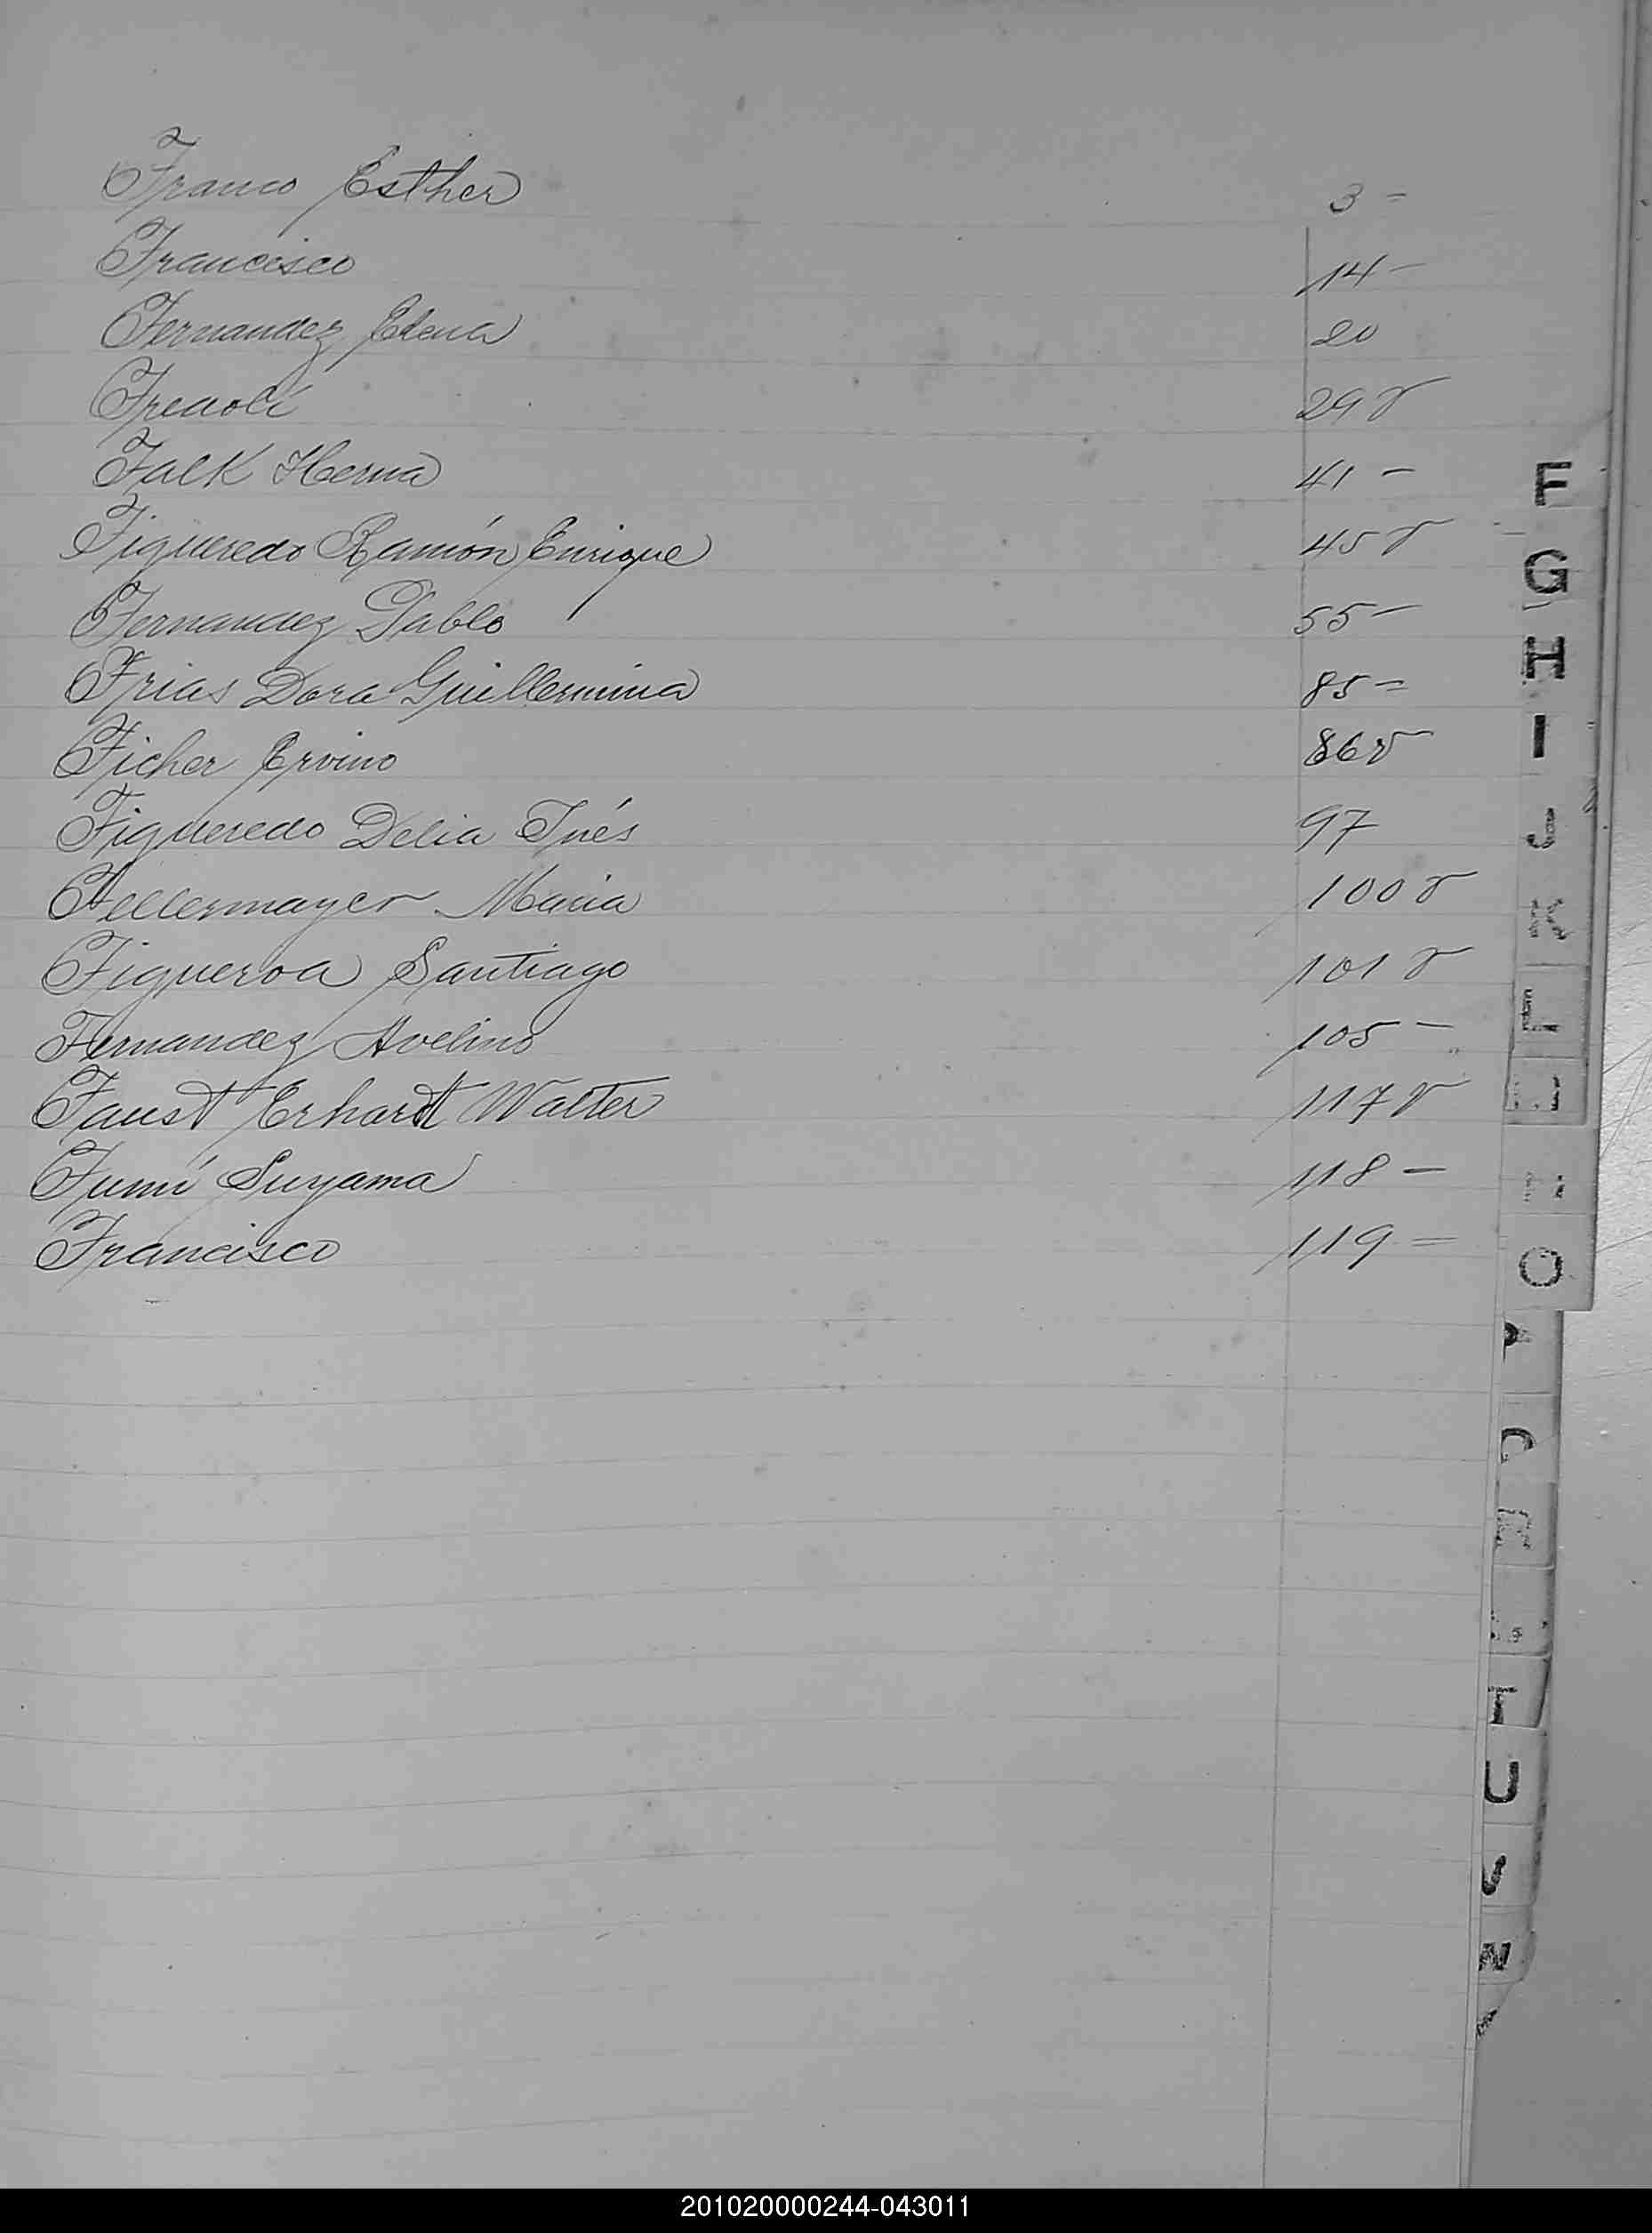 Franco Esther 3 -
Francisco 14 -
Fernandez Elena 20
29 v
Falk Herna 41 -
Figueredo Ramón Enrique 45 v
Fernandez Pablo 55 -
Frias Dora Guillermina 85 -
Ficher Ervino 86 v
Figueredo Delia Inés 97
Fellermayer Maria 100 v
Figueroa Santiago 101 v
Fernandez Avelino 105 -
Faust Erhardt Walter 117 v
Fumí Suyama 118 -
Francisco 119 -
F
G
H
I
J
K
L
O
P
T
U
V
201020000244-043011